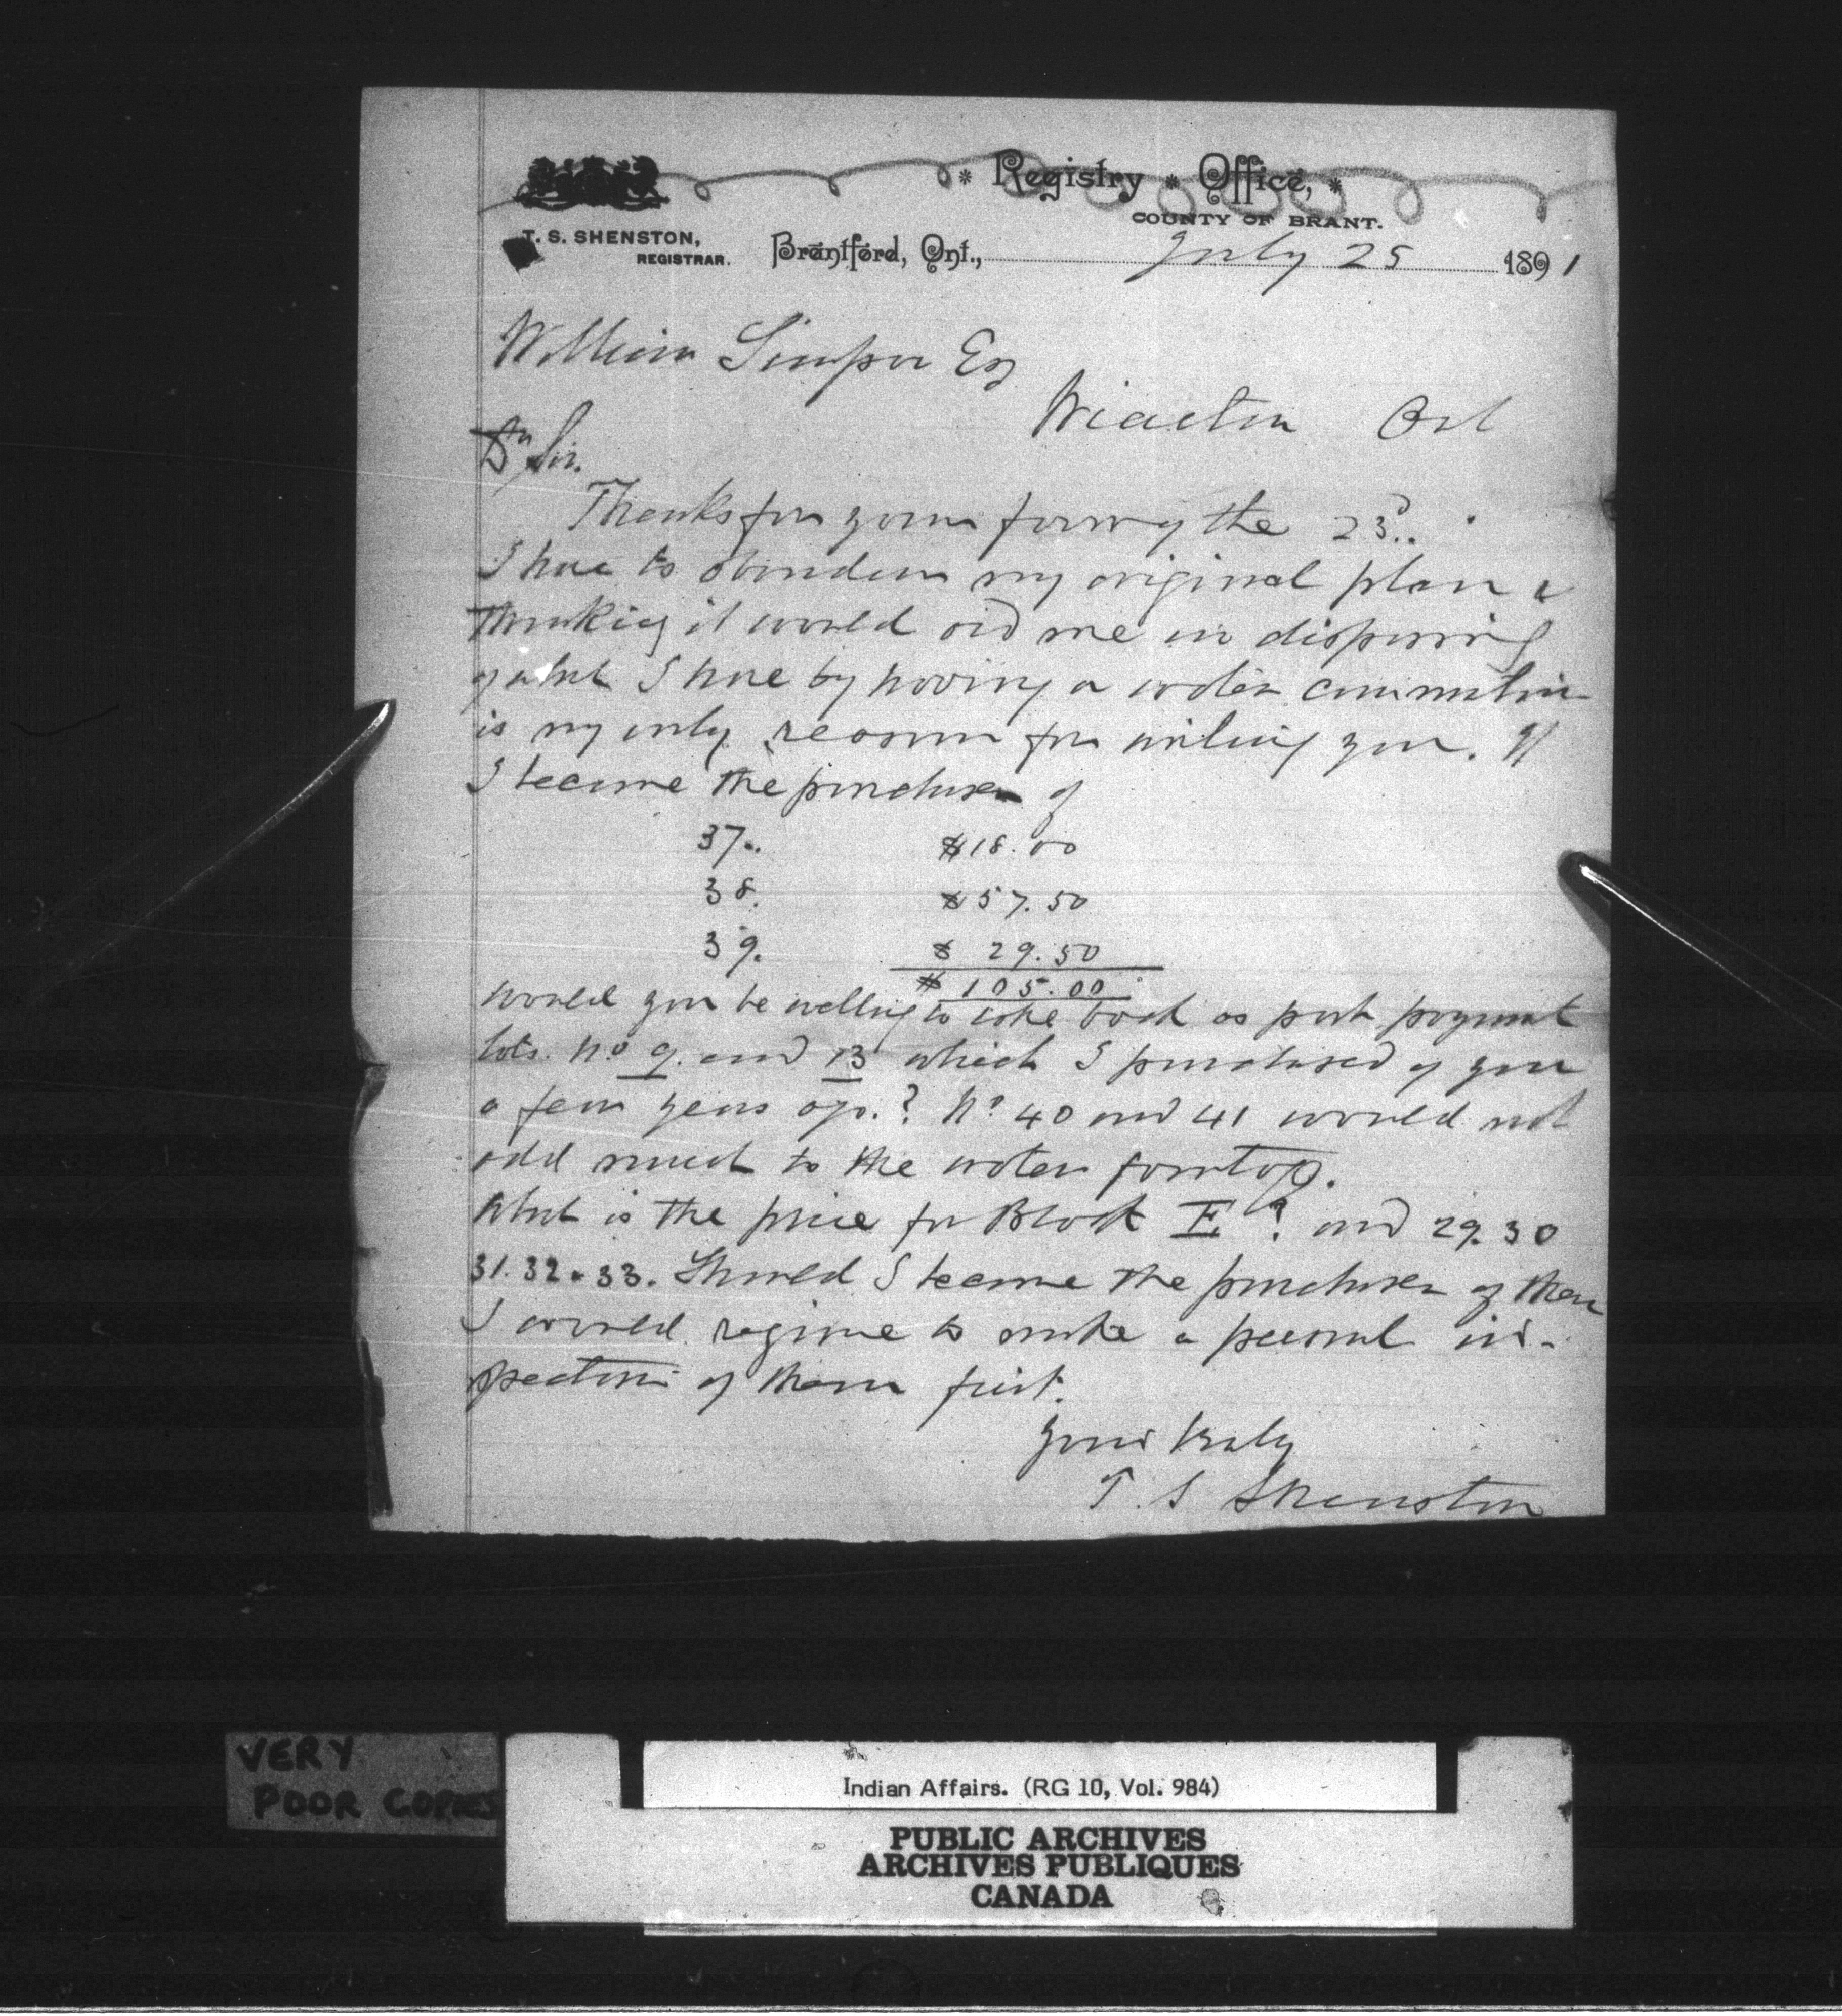 * Registry * Office, *
COUNTY OF BRANT.
T. S. SHENSTON,
REGISTRAR.
Brantford, Ont., July 25 1891
William Simpson Esq
Wiarton Ont
Dr Sir.
Thanks for your favor of the 23d..
I have to abandon my original plan &
thinking it would aid me in disposing
of what I have by having a water
is my only reason for writing you. If
I became the purchaser of
37.. $18.00
38. $57.50
39. $ 29.50
$ 105.00
would you be willing to take back as part payment
lots. No 9. and 13 which I purchased of you
a few years ago.? No 40 and 41 would not
add much to the water
What is the price for Block E? and 29. 30
31. 32 & 33. Should I became the purchaser of them
I would require to make a personal ins-
pection of them first.
Yours truly
T. S Shenston
VERY
POOR COPIES
Indian Affairs. (RG 10, Vol. 984)
PUBLIC ARCHIVES
ARCHIVES PUBLIQUES
CANADA